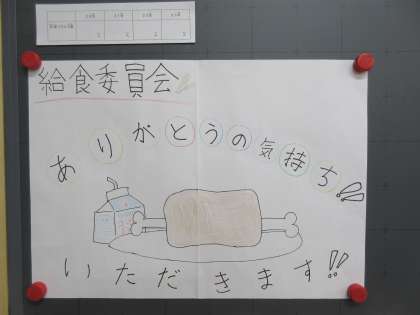 給食委員会
ありがとうの気持ち!!
いただきます!!